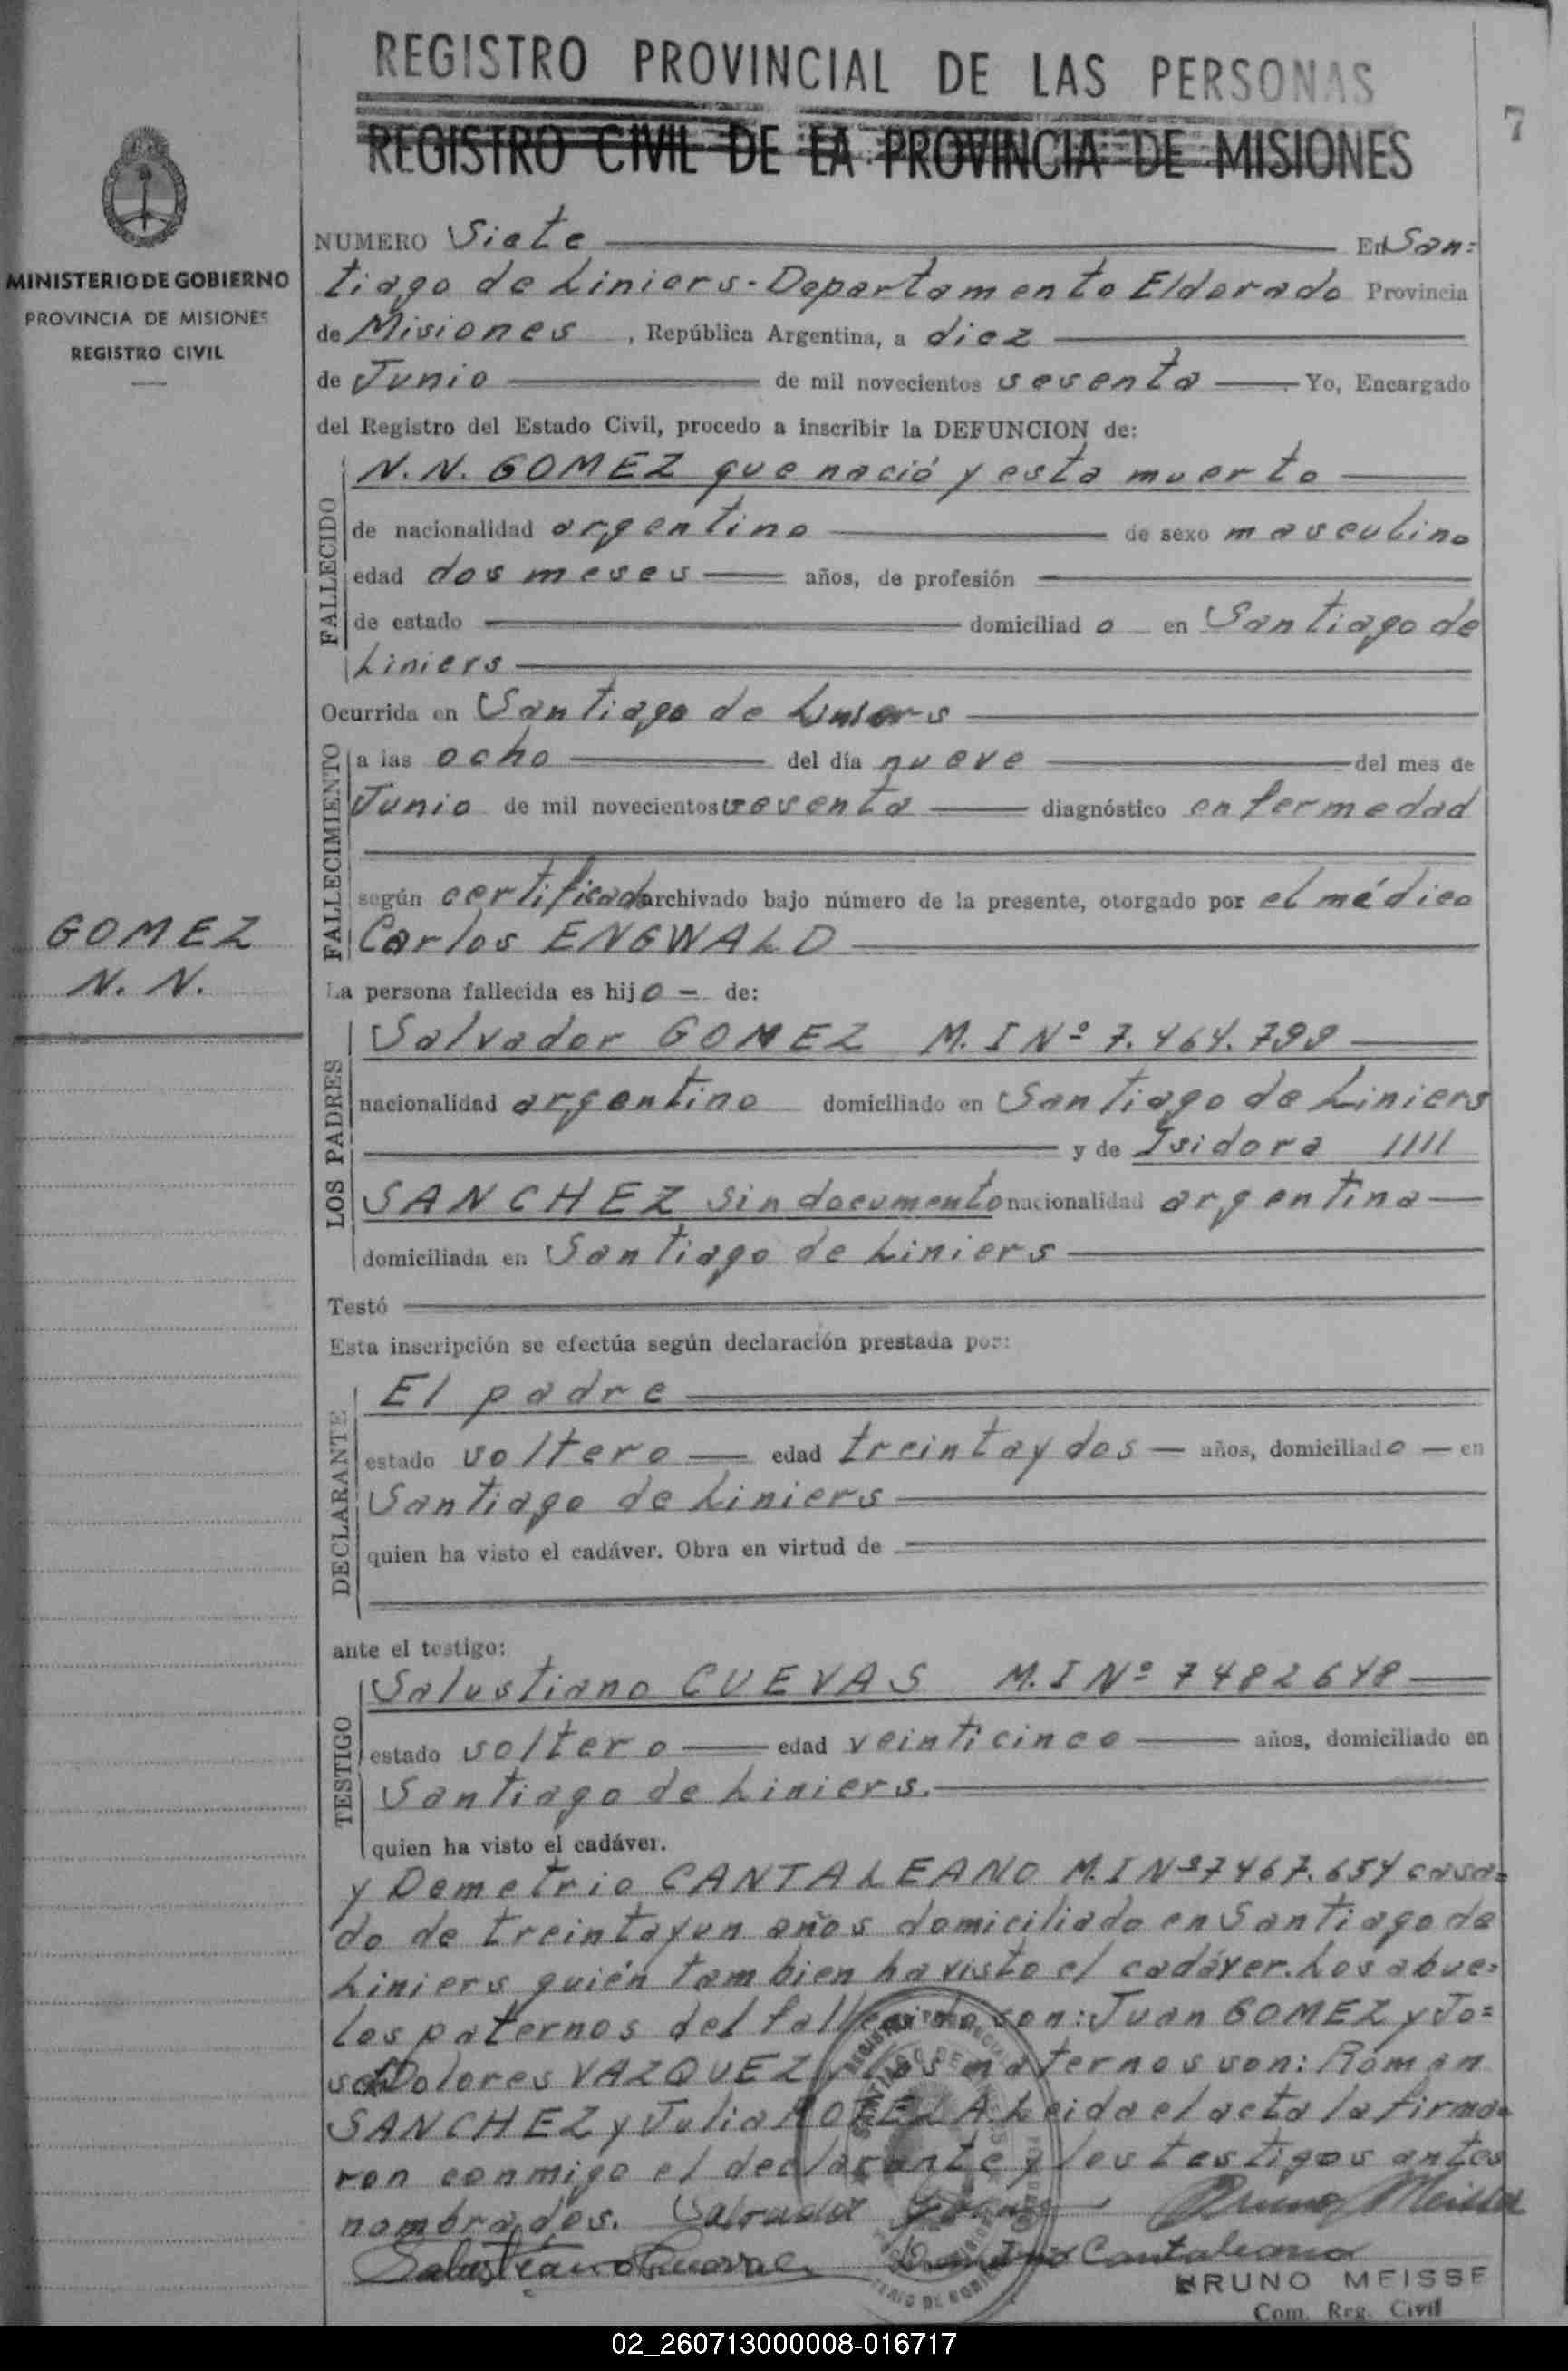 REGISTRO PROVINCIAL DE LAS PERSONAS
REGISTRO CIVIL DE LA PROVINCIA DE MISIONES
7
MINISTERIO DE GOBIERNO
PROVINCIA DE MISIONES
REGISTRO CIVIL
GOMEZ
N. N.
NUMERO Siete En San=
tiago de Liniers - Departamento Eldorado Provincia
de Misiones, República Argentina, a diez
de Junio de mil novecientos sesenta Yo, Encargado
del Registro del Estado Civil, procedo a inscribir la DEFUNCION de:
FALLECIDO
N. N. GOMEZ que nació y esta muerto
de nacionalidad argentino de sexo masculino
edad dos meses años, de profesión
de estado domiciliado en Santiago de
Liniers
Ocurrida en Santiago de Liniers
FALLECIMIENTO
a las ocho del día nueve del mes de
Junio de mil novecientos sesenta diagnóstico enfermedad
según certificado archivado bajo número de la presente, otorgado por el médico
Carlos ENGWALD
La persona fallecida es hijo - de:
LOS PADRES
Salvador GOMEZ M. I Nº 7.464.799
nacionalidad argentino domiciliado en Santiago de Liniers
y de Isidora IIII
SANCHEZ sin documento nacionalidad argentina
domiciliada en Santiago de Liniers
Testó
Esta inscripción se efectúa según declaración prestada por:
DECLARANTE
El padre
estado soltero edad treinta y dos años, domiciliado en
Santiago de Liniers
quien ha visto el cadáver. Obra en virtud de
ante el testigo:
TESTIGO
Salustiano CUEVAS M. I Nº 7482648
estado soltero edad veinticinco años, domiciliado en
Santiago de Liniers.
quien ha visto el cadáver.
y Demetrio CANTALEANO M. I Nº 7467.654 casa=
do de treinta y un años domiciliado en Santiago de
Liniers quién tambien ha visto el cadáver. Los abue=
los paternos del fallecido son: Juan GOMEZ y Jo=
sefa Dolores VAZQUEZ y los maternos son: Román
SANCHEZ y Julia Leida el acta la firma=
ron conmigo el declarante y los testigos antes
nombrados. Salvador Gomez Bruno Meisse
Salustiano Cuevas Demetrio Cantaleano
BRUNO MEISSE
Com. Reg. Civil
02_260713000008-016717